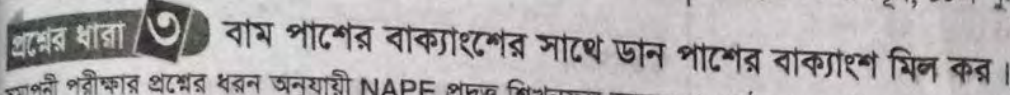 প্রশ্নের ধারা ৩ বাম পাশের বাক্যাংশের সাথে ডান পাশের বাক্যাংশ মিল কর।
পরীক্ষার প্রশ্নের ধরন অনুযায়ী NAPE প্রদত্ত